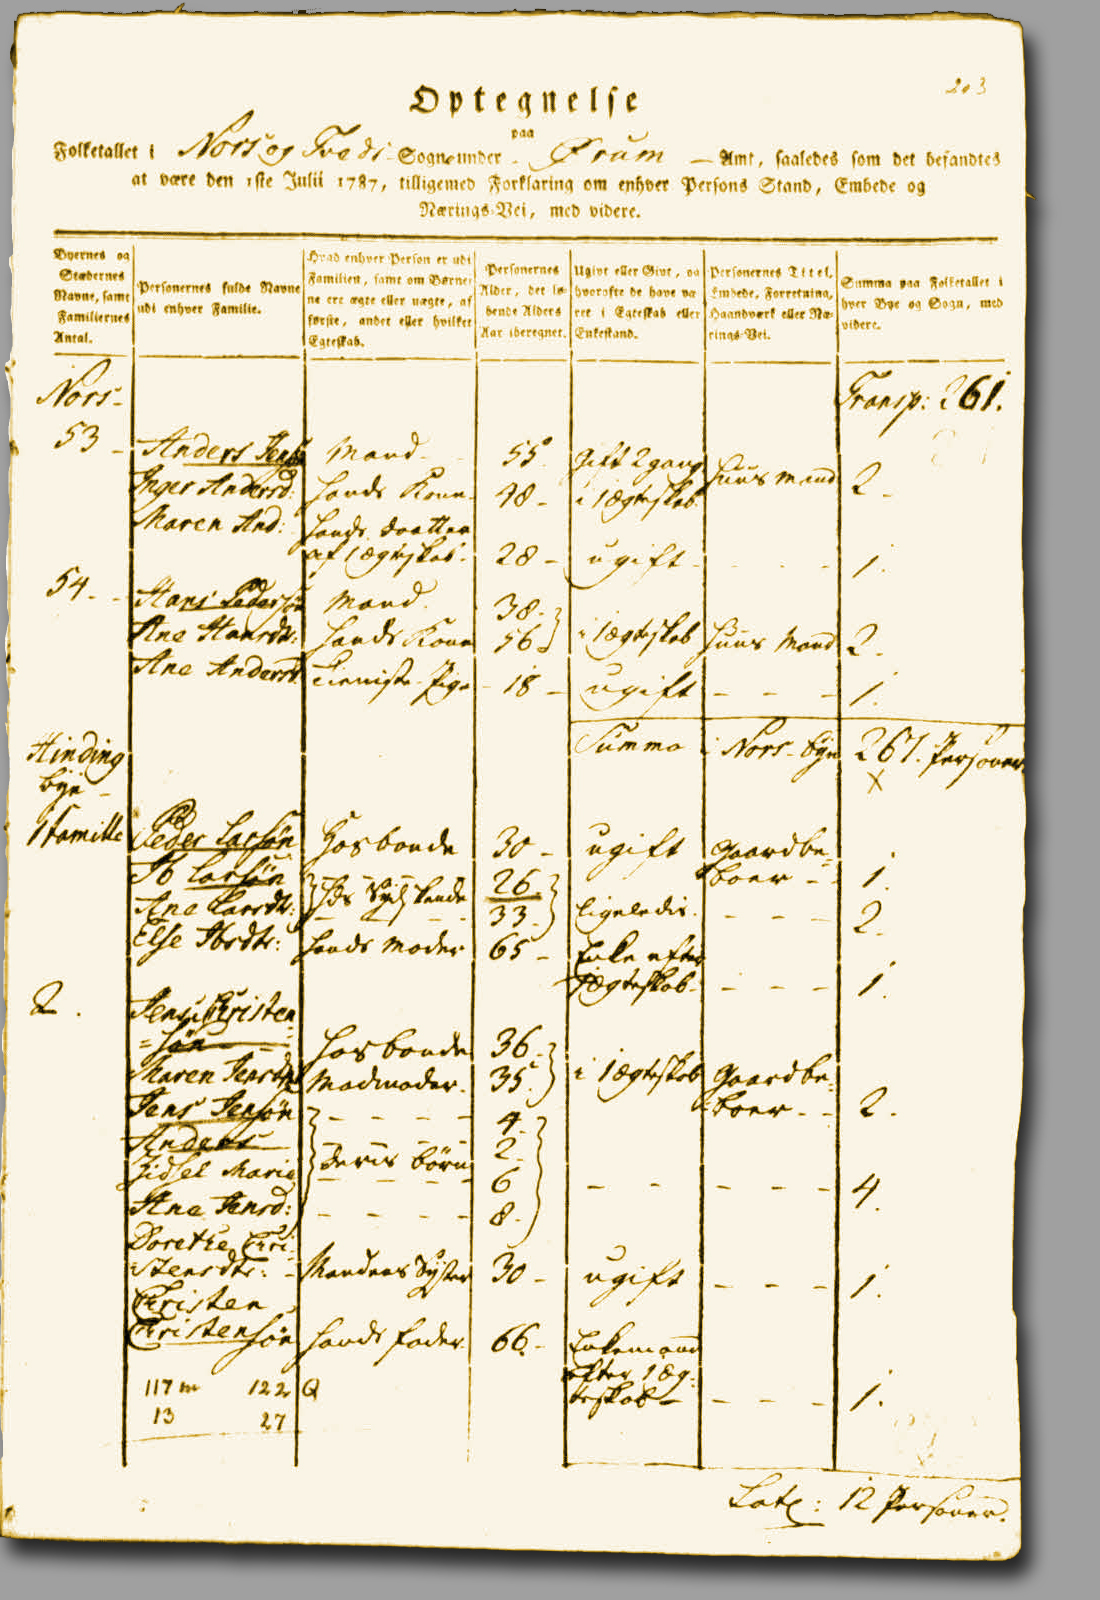 203
Optegnelse
paa
Folketallet i Nors og Tveds Sogne under Ørum Amt, saaledes som det befandtes
at være den 1ste Julii 1787, tilligemed Forklaring om enhver Persons Stand, Embede og
Nærings-Vei, med videre.
Byernes og
Stædernes
Navne, samt
Familiernes
Antal.
Personernes fulde Navne
udi enhver Familie.
Hvad enhver Person er udi
Familien, samt om Børne-
ne ere ægte eller uægte, af
første, andet eller hvilket
Egteskab.
Personernes
Alder, det lø-
bende Alders
Aar iberegnet.
Ugivt eller Givt, og
hvorofte de have væ-
ret i Egteskab eller
Enkestand.
Personernes Titel,
Embede, Forretning,
Haandværk eller Næ-
rings-Vei.
Summa paa Folketallet i
hver Bye og Sogn, med
videre.
Nors- Transp: 261.
53 - Anders Jens Mand 55 gift 2 gang
Inger Andersd: hands Kone 48 - i 1 ægteskab huus mand 2 -
Maren And: hands daatter
af 1 ægteskab 28 - ugift - - - 1.
54 - - Hans Pedersøn Mand 38
Ane Hansdr: hands Kone 56 i 1 ægteskab huus Mand 2 -
Ane Andersd: tieniste Pige - 18 - ugift - - - 1.
Summa i Nors bye 267. Personer
x
Hinding
bye -
1 Familie Peder Larsøn Hosbonde 30 - ugift Gaardbe=
boer - - 1.
Ib Larsøn 26
Ane Larsdtr: Hds Sydskende 33 ligeledis - - - 2.
Else Ibsdtr: hands Moder 65 - Enke efter
1 ægteskab - - - 1.
2. Jens Christen=
=søn Hosbonde 36
Maren Jensdtr Madmoder 35 i 1 ægteskab Gaardbe=
boer - - 2.
Jens Jensøn - - - 4
Anders deris børn 2
Zidsel Marie - - - 6 - - - - 4.
Ane Jensd: - - - 8
Dorethe Chri-
stensdtr: - Mandens Syster 30 - ugift - - - 1.
Christen
Christensøn hands fader 66 - Enkemand
efter 1 æg-
teskab - - - - 1.
117 m 122 Q
13 27
Late: 12 Personer.